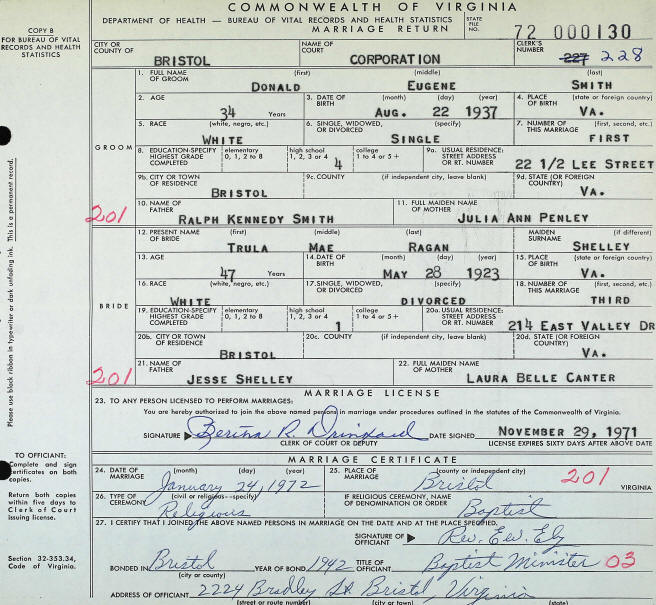 COMMONWEALTH OF VIRGINIA
DEPARTMENT OF HEALTH — BUREAU OF VITAL RECORDS AND HEALTH STATISTICS
MARRIAGE RETURN
STATE FILE NO. 72 000130
COPY B
FOR BUREAU OF VITAL RECORDS AND HEALTH STATISTICS
CITY OR COUNTY OF BRISTOL NAME OF COURT CORPORATION CLERK'S NUMBER 227 228
GROOM
1. FULL NAME OF GROOM (first) DONALD (middle) EUGENE (last) SMITH
2. AGE 34 Years 3. DATE OF BIRTH (month) (day) (year) AUG. 22 1937 4. PLACE OF BIRTH (state or foreign country) VA.
5. RACE (white, negro, etc.) WHITE 6. SINGLE, WIDOWED, OR DIVORCED (specify) SINGLE 7. NUMBER OF THIS MARRIAGE (first, second, etc.) FIRST
8. EDUCATION-SPECIFY HIGHEST GRADE COMPLETED elementary 0, 1, 2 to 8 high school 1, 2, 3 or 4 4 college 1 to 4 or 5+ 9a. USUAL RESIDENCE: STREET ADDRESS OR RT. NUMBER 22 1/2 LEE STREET
9b. CITY OR TOWN OF RESIDENCE BRISTOL 9c. COUNTY (if independent city, leave blank) 9d. STATE (OR FOREIGN COUNTRY) VA.
201 10. NAME OF FATHER RALPH KENNEDY SMITH 11. FULL MAIDEN NAME OF MOTHER JULIA ANN PENLEY
BRIDE
12. PRESENT NAME OF BRIDE (first) TRULA (middle) MAE (last) RAGAN MAIDEN SURNAME (if different) SHELLEY
13. AGE 47 Years 14. DATE OF BIRTH (month) (day) (year) MAY 28 1923 15. PLACE OF BIRTH (state or foreign country) VA.
16. RACE (white, negro, etc.) WHITE 17. SINGLE, WIDOWED, OR DIVORCED (specify) DIVORCED 18. NUMBER OF THIS MARRIAGE (first, second, etc.) THIRD
19. EDUCATION-SPECIFY HIGHEST GRADE COMPLETED elementary 0, 1, 2 to 8 high school 1, 2, 3 or 4 1 college 1 to 4 or 5+ 20a. USUAL RESIDENCE: STREET ADDRESS OR RT. NUMBER 214 EAST VALLEY DR
20b. CITY OR TOWN OF RESIDENCE BRISTOL 20c. COUNTY (if independent city, leave blank) 20d. STATE (OR FOREIGN COUNTRY) VA.
201 21. NAME OF FATHER JESSE SHELLEY 22. FULL MAIDEN NAME OF MOTHER LAURA BELLE CANTER
MARRIAGE LICENSE
23. TO ANY PERSON LICENSED TO PERFORM MARRIAGES:
You are hereby authorized to join the above named persons in marriage under procedures outlined in the statutes of the Commonwealth of Virginia.
SIGNATURE Bertha R. CLERK OF COURT OR DEPUTY DATE SIGNED NOVEMBER 29, 1971
LICENSE EXPIRES SIXTY DAYS AFTER ABOVE DATE
MARRIAGE CERTIFICATE
24. DATE OF MARRIAGE (month) (day) (year) January 24, 1972 25. PLACE OF MARRIAGE (county or independent city) Bristol 201 VIRGINIA
26. TYPE OF CEREMONY (civil or religious—specify) Religious IF RELIGIOUS CEREMONY, NAME OF DENOMINATION OR ORDER Baptist
27. I CERTIFY THAT I JOINED THE ABOVE NAMED PERSONS IN MARRIAGE ON THE DATE AND AT THE PLACE SPECIFIED.
SIGNATURE OF OFFICIANT Rev. Ew. Ely
BONDED IN Bristol (city or county) YEAR OF BOND 1942 TITLE OF OFFICIANT Baptist Minister 03
ADDRESS OF OFFICIANT 2224 Bradley St. Bristol, Virginia
(street or route number) (city or town) (state)
Please use black ribbon in typewriter or dark unfading ink. This is a permanent record.
TO OFFICIANT:
Complete and sign certificates on both copies.
Return both copies within five days to Clerk of Court issuing license.
Section 32-353.34, Code of Virginia.